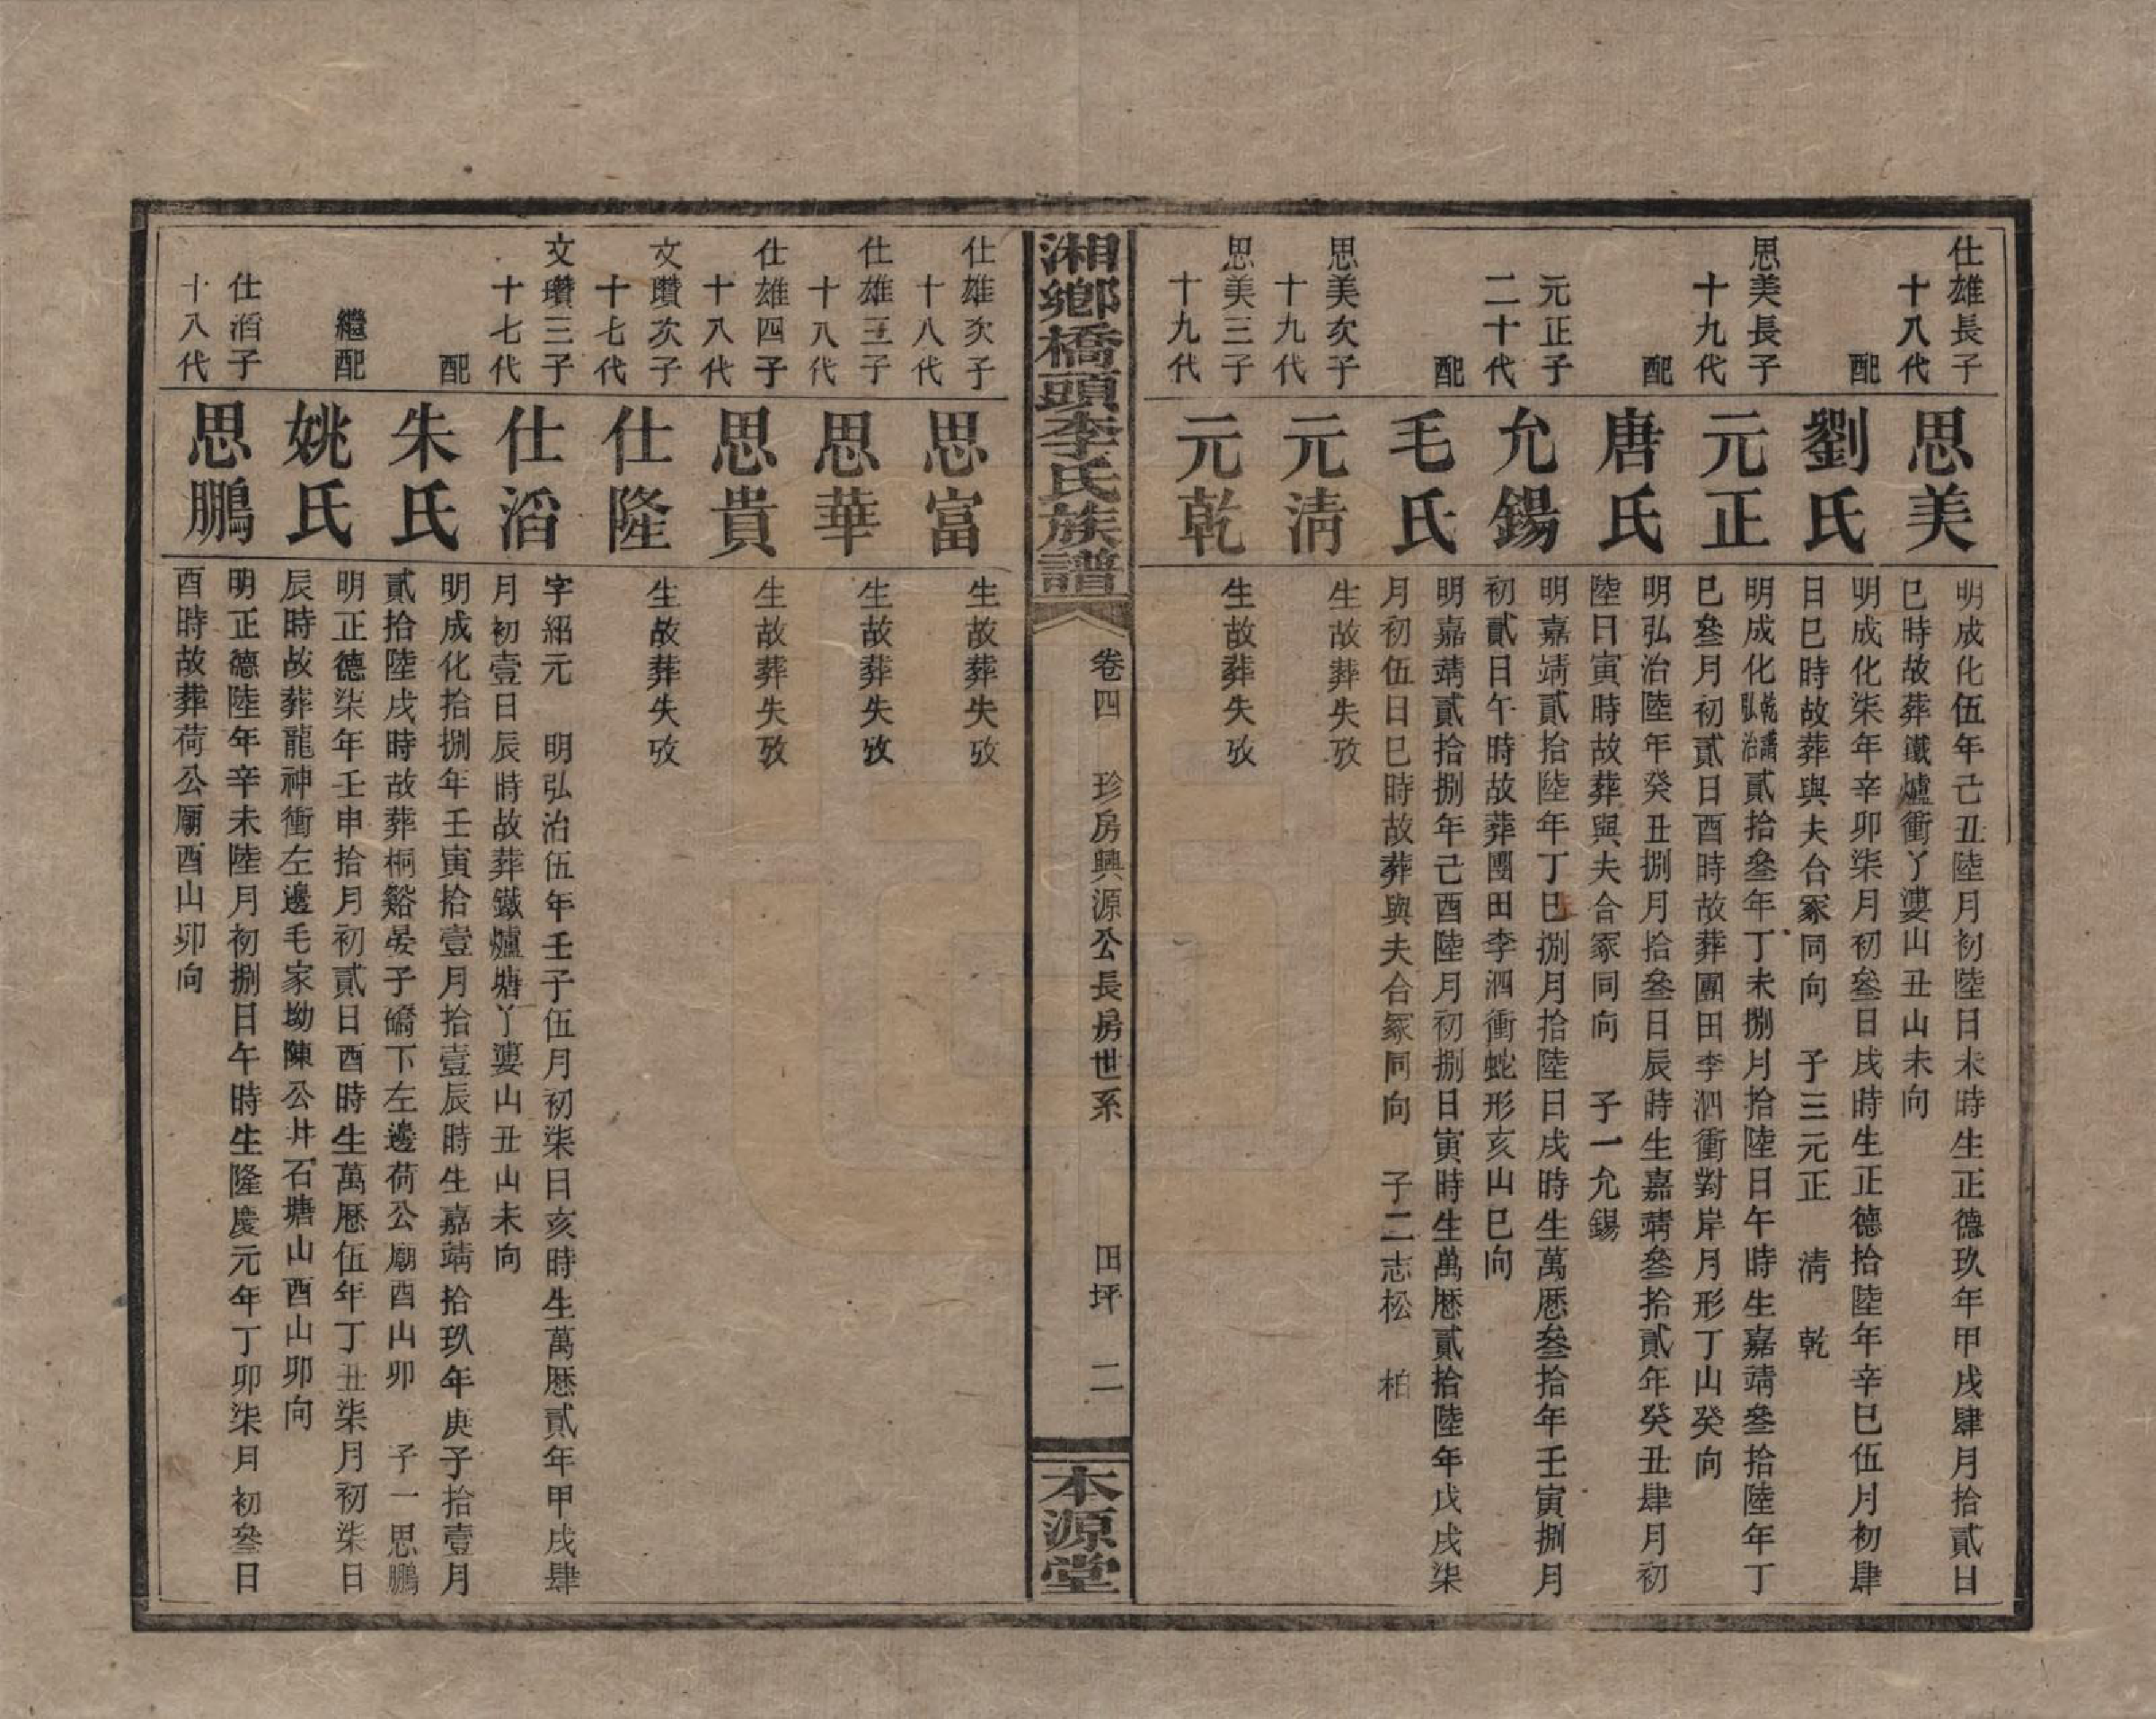 仕雄長子
十八代
思美
明成化伍年己丑陸月初陸日未時生正德玖年甲戌肆月拾貳日
巳時故葬鐵爐衝丫漊山丑山未向
配
劉氏
明成化柒年辛卯柒月初叄日戌時生正德拾陸年辛巳伍月初肆
日巳時故葬與夫合冢同向 子三元正 清 乾
思美長子
十九代
元正
明成化乾譜弘治貳拾叄年丁未捌月拾陸日午時生嘉靖叄拾陸年丁
巳叄月初貳日酉時故葬團田李泗衝對岸月形丁山癸向
配
唐氏
明弘治陸年癸丑捌月拾叄日辰時生嘉靖叄拾貳年癸丑肆月初
陸日寅時故葬與夫合冢同向 子一允錫
元正子
二十代
允錫
明嘉靖貳拾陸年丁巳捌月拾陸日戌時生萬曆叄拾年壬寅捌月
初貳日午時故葬團田李泗衝蛇形亥山巳向
配
毛氏
明嘉靖貳拾捌年己酉陸月初捌日寅時生萬曆貳拾陸年戊戌柒
月初伍日巳時故葬與夫合冢同向 子二志松 柏
思美次子
十九代
元清
生故葬失攷
思美三子
十九代
元乾
生故葬失攷
湘鄉橋頭李氏族譜
卷四 珍房興源公長房世系 田坪 二
本源堂
仕雄次子
十八代
思富
生故葬失攷
仕雄三子
十八代
思華
生故葬失攷
仕雄四子
十八代
思貴
生故葬失攷
文瓚次子
十七代
仕隆
生故葬失攷
文瓚三子
十七代
仕滔
字紹元 明弘治伍年壬子伍月初柒日亥時生萬曆貳年甲戌肆
月初壹日辰時故葬鐵爐塘丫漊山丑山未向
配
朱氏
明成化拾捌年壬寅拾壹月拾壹辰時生嘉靖拾玖年庚子拾壹月
貳拾陸戌時故葬桐谿晏子礄下左邊荷公廟酉山卯 子一思鵬
繼配
姚氏
明正德柒年壬申拾月初貳日酉時生萬曆伍年丁丑柒月初柒日
辰時故葬龍神衝左邊毛家坳陳公井石塘山酉山卯向
仕滔子
十八代
思鵬
明正德陸年辛未陸月初捌日午時生隆慶元年丁卯柒月初叄日
酉時故葬荷公廟酉山卯向